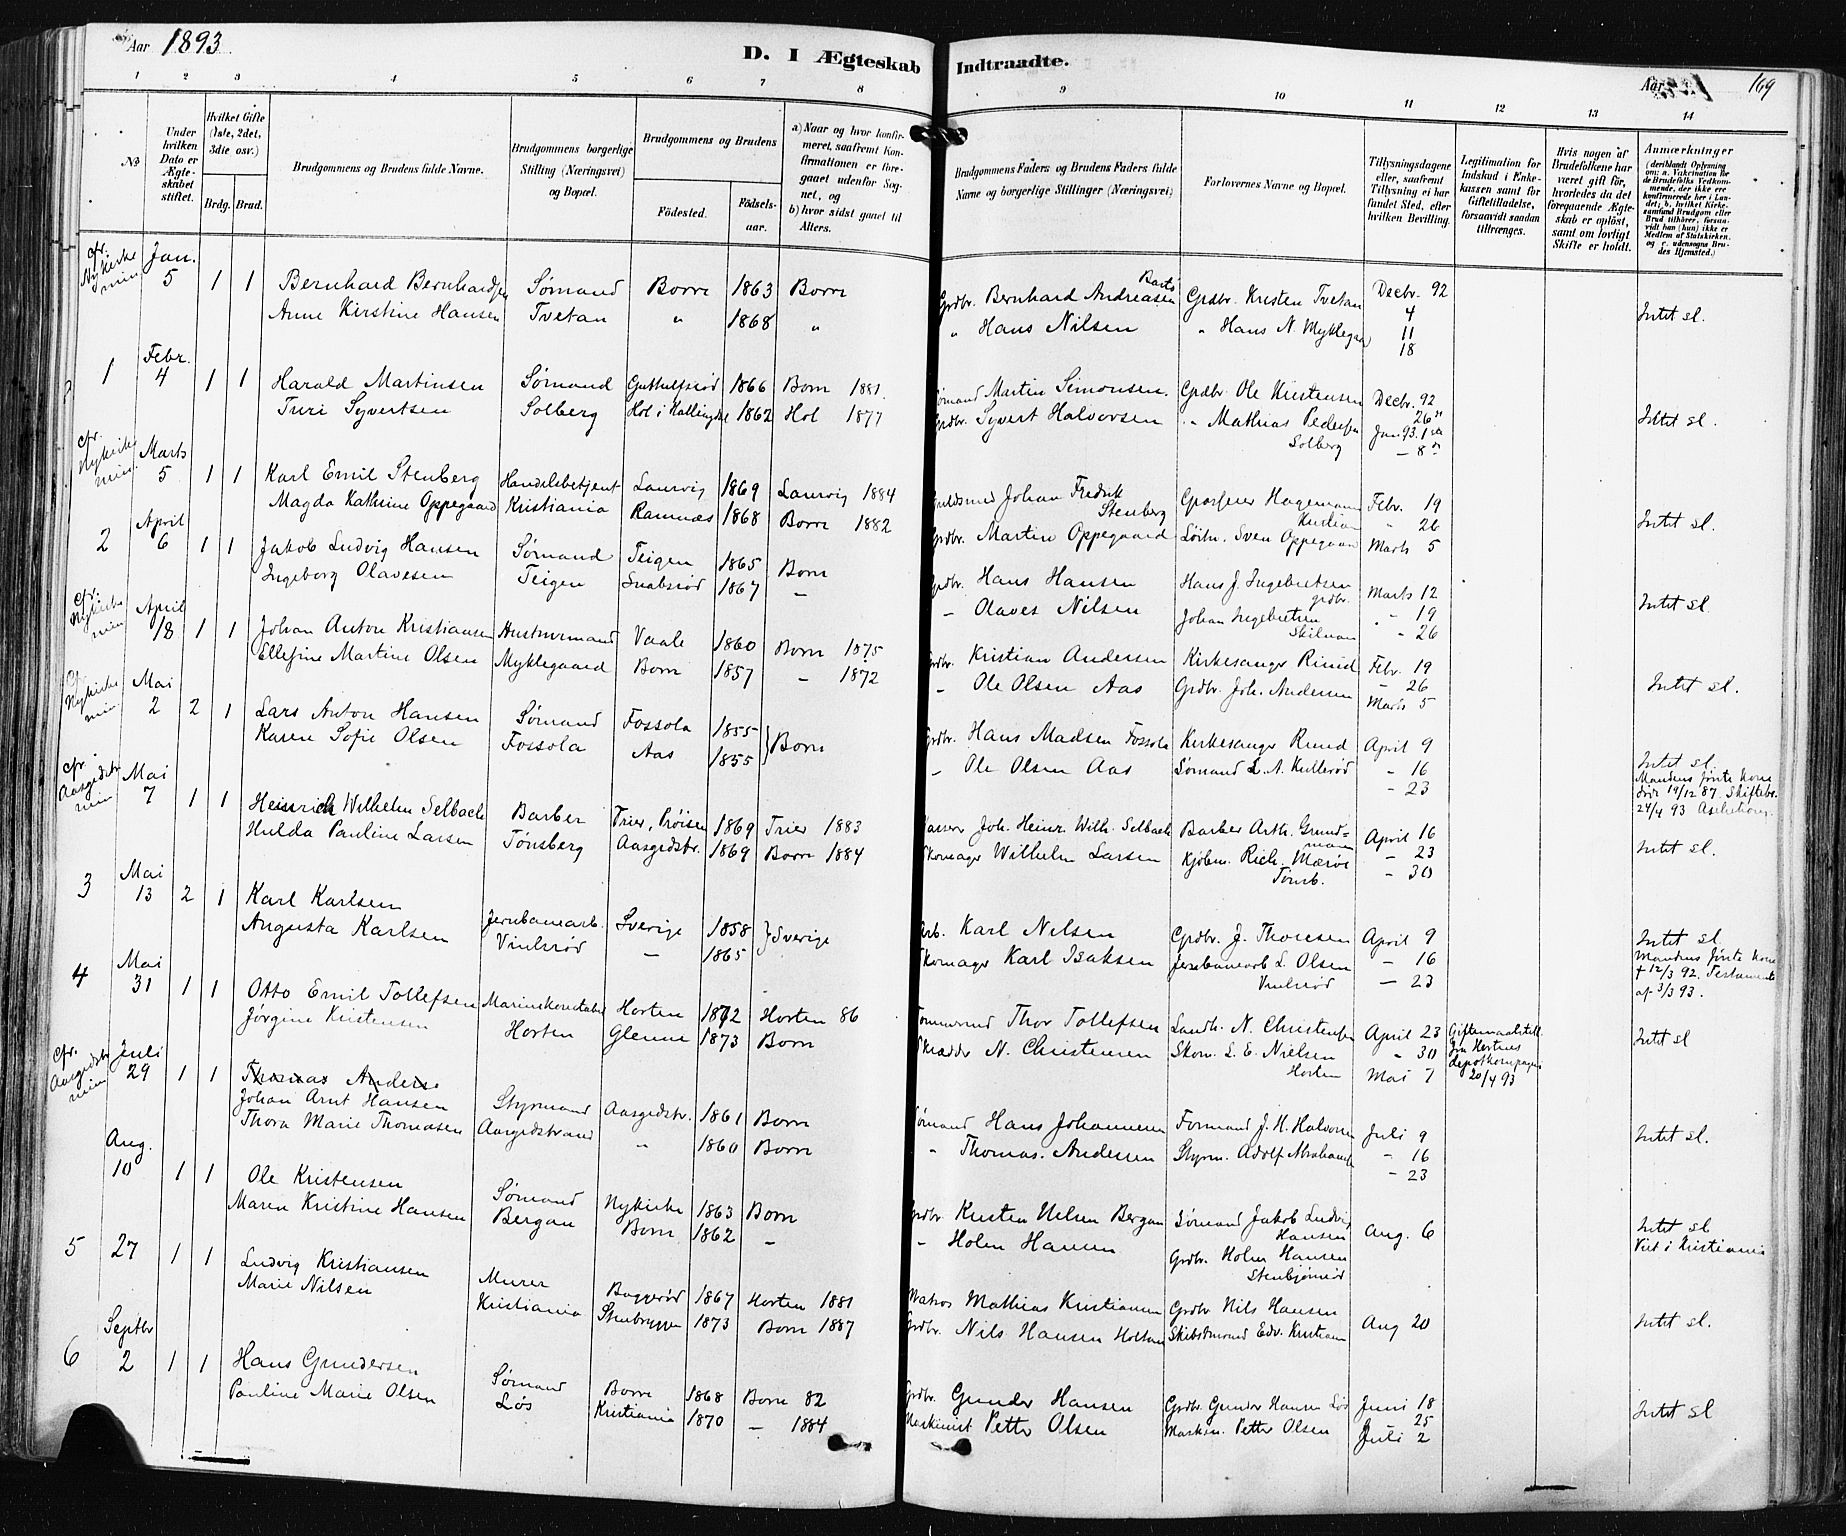 Aar 1893.
D. I Ægteskab Indtraadte.
Aar 169
1 2 3 4 5 6 7 8 9 10 11 12 13 14
No
Under hvilken Dato er Ægteskabet stiftet.
Hvilket Gifte (1ste, 2det, 3die osv.)
Brdg. Brud.
Brudgommens og Brudens fulde Navne.
Brudgommens borgerlige Stilling (Næringsvei) og Bopæl.
Brudgommens og Brudens
Fødested. Fødselsaar.
a) Naar og hvor konfirmeret, saafremt Konfirmationen er foregaaet udenfor Sognet, og b) hvor sidst gaaet til Alters.
Brudgommens Faders og Brudens Faders fulde Navne og borgerlige Stillinger (Næringsvei)
Forlovernes Navne og Bopæl.
Tillysningsdagene eller, saafremt Tillysning ei har fundet Sted, efter hvilken Bevilling.
Legitimation for Indskud i Enkekassen samt for Giftetilladelse, forsaavidt saadan tiltrænges.
Hvis nogen af Brudefolkene har været gift før, hvorledes da det foregaaende Ægteskab er opløst, samt om lovligt Skifte er holdt.
Anmærkninger (deriblandt Oplysning om: a. Vaccination for de Brudefolks Vedkommende, der ikke ere konfirmerede her i Landet; b. hvilket Kirkesamfund Brudgom eller Brud tilhører, forsaavidt han (hun) ikke er Medlem af Statskirken, og c. udensogns Brudes Hjemsted.)
cfr. Nykirke min Jan. 5 1 1 Bernhard Bernhardsen Sømand Borre 1863 Borre Grdbr. Bernhard Andreasen Grdbr. Kristen Tvetan Decbr. 92 4
Anne Kirstine Hansen Tvetan " 1868 " " Hans Nilsen " Hans N. Myklegaa 11 18 Intet sl.
1 Febr. 4 1 1 Harald Martinsen Sømand 1866 Borre 1881. Sømand Martin Simonsen. Grdbr. Ole Kristensen Decbr. 92 26
Turi Syvertsen Solberg Hol i Hallingdal 1862 Hol 1877 Grdbr. Syvert Halvorsen " Mathias Pedersen Solberg Jan 93. 1 - 8 Intet sl.
cfr. Nykirke min Marts 5 1 1 Karl Emil Stenberg Handelsbetjent Laurvig 1869 Laurvig 1884 Guldsmed Johan Fredrik Stenberg Grosserer Hagemann Kristian Febr. 19
Magda Kathrine Oppegaard Kristiania Ramnæs 1868 Borre 1882 Grdbr. Martin Oppegaard Löitn. Sven Oppegaar " 26 Marts 5 Intet sl.
2 April 6 1 1 Jakob Ludvig Hansen Sømand Teigen 1865 Borre Grdbr. Hans Hansen Hans J. Ingebretsen grdbr. Marts 12
Ingeborg Olavesen Teigen Snabsrød 1867 - - Olaves Nilsen Johan Ingebretsen - 19 - 26 Intet sl.
cfr. Nykirke min April 18 1 1 Johan Anton Kristiansen Husmurmand Vaale 1860 Borre 1875 Grdbr. Kristian Andersen Kirkesanger Ruud Febr. 19
Ellefine Martine Olsen Myklegaard Borre 1857 - 1872 - Ole Olsen Aas Grdbr. Joh. Andersen - 26 Marts 5 Intet sl.
cfr. Nykirke min Mai 2 2 1 Lars Anton Hansen Sømand Fossola 1855 } Borre Grdbr. Hans Madsen Fossola Kirkesanger Ruud April 9
Karen Sofie Olsen Fossola Aas 1855 - Ole Olsen Aas Sømand L. A. Kullerød - 16 - 23 Intet sl. Mandens første kone døde 19/12 87. Skiftebr. 24/4 93
cfr. Aasgdstr. min Mai 7 1 1 Heinrich Wilhelm Selbach Barber Trier, Prøisen 1869 Trier 1883 Joh. Heinr. Wilh. Selbach Barber Arth. Grundmann April 16
Hulda Pauline Larsen Tønsberg Aasgdstr. 1869 Borre 1884 Skomager Wilhelm Larsen Kjøbm. Rich. Mærøe Tønsb. - 23 - 30 Intet sl.
3 Mai 13 2 1 Karl Karlsen Jernbanearb. Sverige 1858 } Sverige Arb. Karl Nilsen Grdbr. J. Thoresen April 9
Augusta Karlsen Vinlerød - 1865 Skomager Karl Isaksen Jernbanearb L. Olsen Vinlerød - 16 - 23 Intet sl. Mandens første kone † 12/3 92. Testamente af 3/3 93.
4 Mai 31 1 1 Otto Emil Tollefsen Marinekonstabel Horten 1872 Horten 86 Tømmermd Thor Tollefsen Landh. N. Christensen April 23 Giftermaalstill. fra Hortens Depotkompagni 20/4 93
Jørgine Kristensen Horten Glenne 1873 Borre Skrædder N. Christensen Skom. L. E. Nielsen Horten " 30 Mai 7 Intet sl
cfr. Aasgdstr. min Juli 29 1 1 Thomas Anderse
Johan Arnt Hansen Styrmand Aasgdstr. 1861 Borre Sømand Hans Johannesen Formand J. H. Halvorsen Juli 9
Thora Marie Thomasen Aasgdstrand " 1860 Borre " Thomas. Andersen Styrm. Adolf Abrahams - 16 - 23 Intet sl.
Aug. 10 1 1 Ole Kristensen Sømand Nykirke 1863 Borre Grdbr. Kristen Nilsen Bergan Sømand Jakob Ludvig Hansen Aug. 6
Maren Kristine Hansen Bergan Borre 1862 - - Holm Hansen Grdbr. Holm Hansen Stenbjønrød Intet sl Viet i Kristiania
5 27 1 1 Ludvig Kristiansen Murer Baggerød 1867 Horten 1881 Matros Mathias Kristiansen Grdbr. Nils Hansen
Marie Nilsen Kristiania Stenbryggen 1873 Borre 1887 Grdbr. Nils Hansen Holtan Skibstømmermd Edv. Kristiansen Aug 20 Intet sl.
6 Septbr 2 1 1 Hans Gundersen Sømand Borre 1868 Borre 82 Grdbr. Gunder Hansen Grdbr. Gunder Hansen Løs Juni 18
Pauline Marie Olsen Løs Kristiania 1870 - 1884 Maskinist Petter Olsen Maskin. Petter Olsen 25 Juli 2 Intet sl